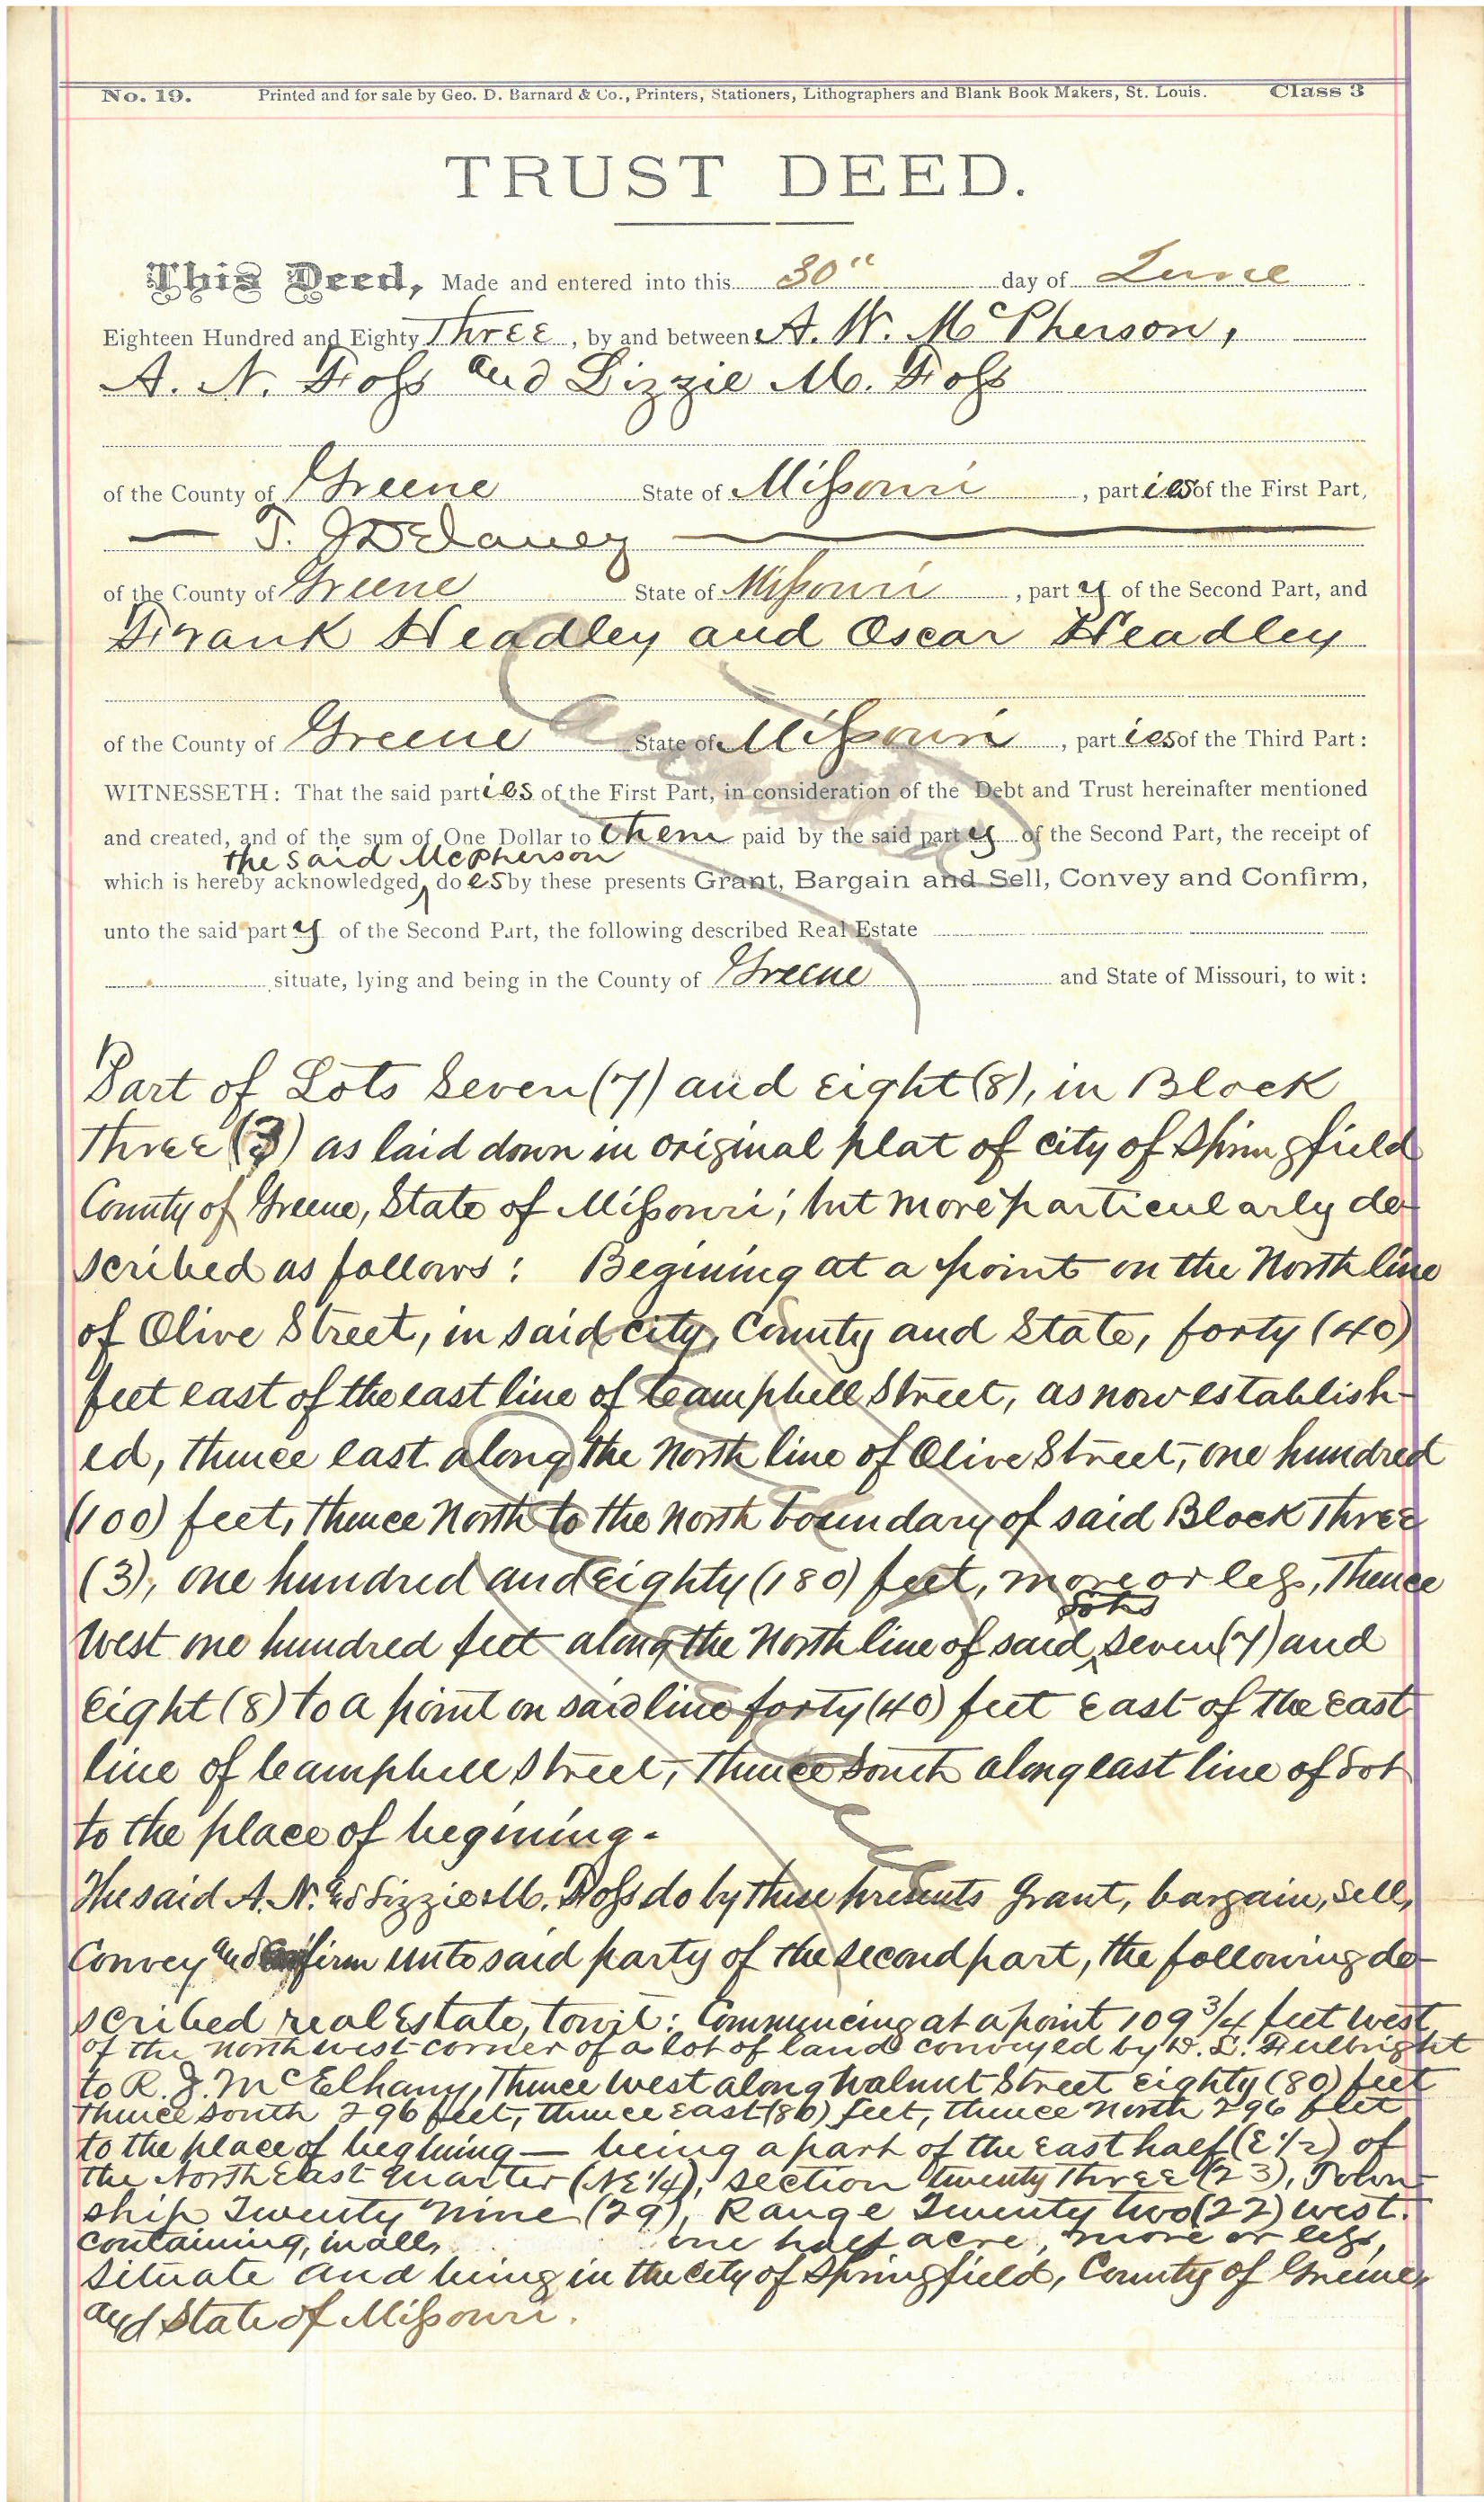 No. 19. Printed and for sale by Geo. D. Barnard & Co., Printers, Stationers, Lithographers and Blank Book Makers, St. Louis. Class 3
TRUST DEED.
This Deed, Made and entered into this 30" day of June
Eighteen Hundred and Eighty Three, by and between A. W. McPherson,
A. N. Foss and Lizzie M. Foss
of the County of Greene State of Missouri, parties of the First Part,
— T. J Delaney —
of the County of Greene State of Missouri, party of the Second Part, and
Frank Headley and Oscar Headley
of the County of Greene State of Missouri, parties of the Third Part:
WITNESSETH: That the said parties of the First Part, in consideration of the Debt and Trust hereinafter mentioned
and created, and of the sum of One Dollar to them paid by the said party of the Second Part, the receipt of
the said McPherson
which is hereby acknowledged, does by these presents Grant, Bargain and Sell, Convey and Confirm,
unto the said party of the Second Part, the following described Real Estate
situate, lying and being in the County of Greene and State of Missouri, to wit:
Part of Lots Seven (7) and Eight (8), in Block
Three (3) as laid down in original plat of city of Springfield
County of Greene, State of Missouri; but more particularly de-
scribed as follows: Begining at a point on the North line
of Olive Street, in said city, County and State, forty (40)
feet east of the east line of Campbell Street, as now establish-
ed, thence east along the North line of Olive Street, one hundred
(100) feet, thence North to the North boundary of said Block Three
(3), one hundred and Eighty (180) feet, more or less, Thence
West one hundred feet along the North line of said Lots Seven (7) and
Eight (8) to a point on said line forty (40) feet East of the East
line of Campbell Street, Thence South along east line of Lot
to the place of begining.
The said A. N. and Lizzie M. Foss do by these presents Grant, bargain, sell,
Convey and Confirm unto said party of the second part, the following de-
scribed real Estate, towit: Commencing at a point 109 3/4 feet West
of the north west corner of a lot of land conveyed by D. L. Fulbright
to R. J. McElhany, Thence West along Walnut Street Eighty (80) feet
Thence South 296 feet, thence East (80) feet, thence North 296 feet
to the place of begining — being a part of the East half (E 1/2) of
the North East Quarter (NE 1/4), Section Twenty Three (23), Town-
ship Twenty Nine (29), Range Twenty Two (22) West.
containing, in all, one half acre, more or less,
Situate and being in the City of Springfield, County of Greene,
and State of Missouri.